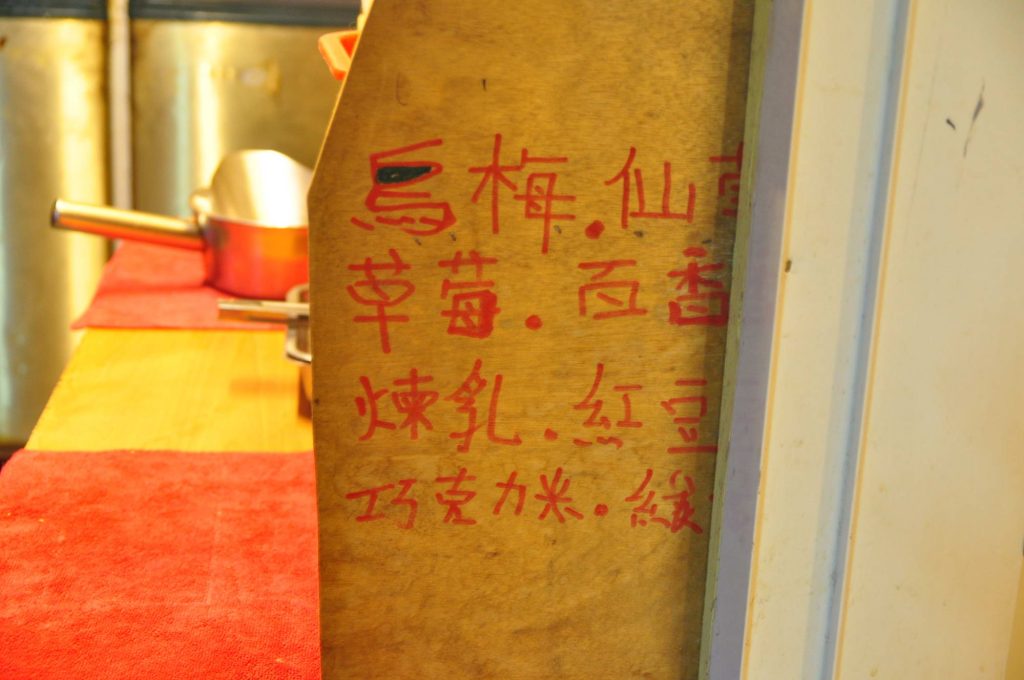 烏梅.仙
草莓.百香
煉乳.紅豆
巧克力米.綠